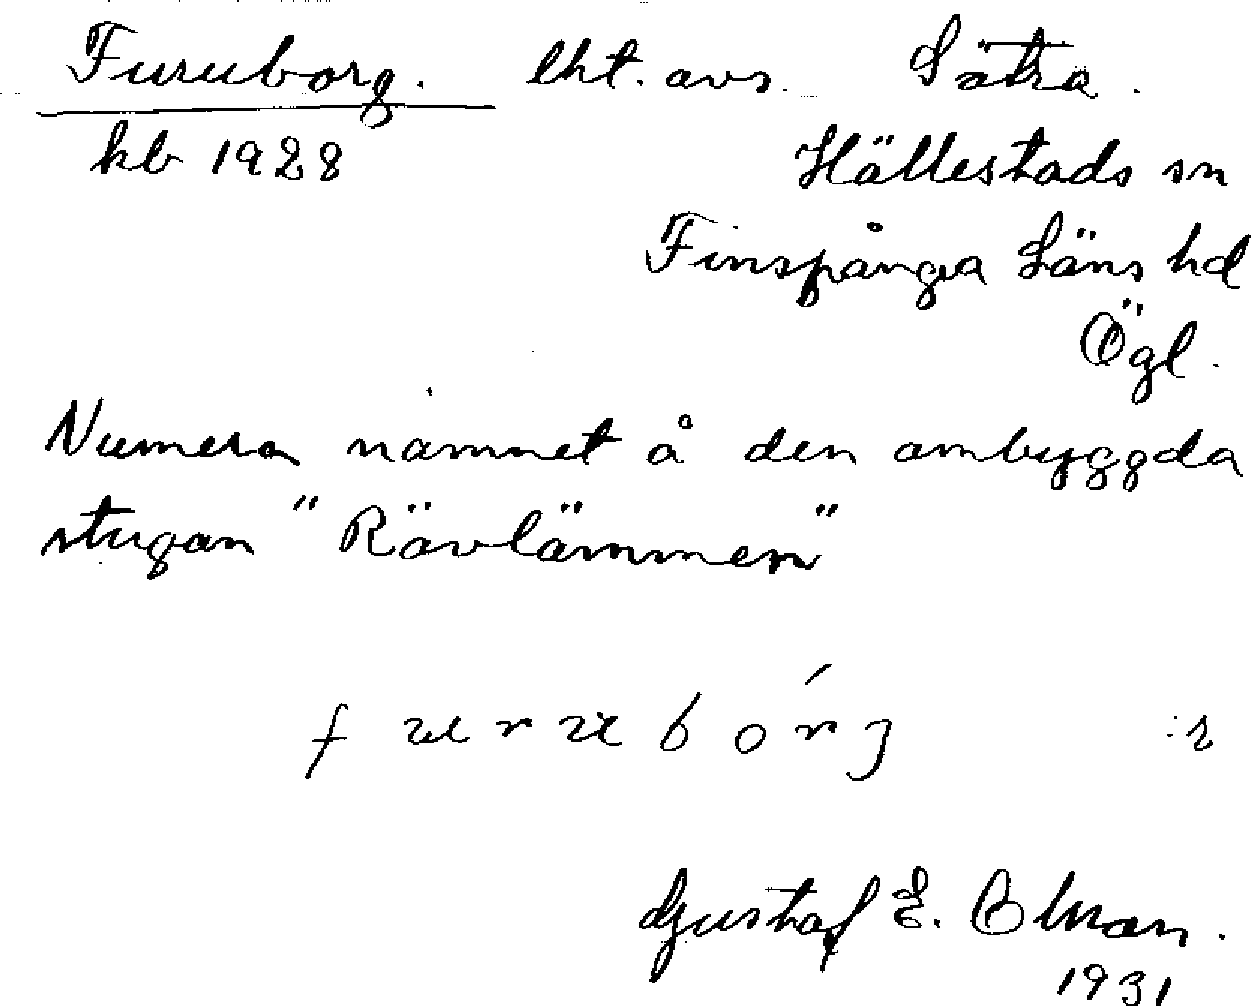 Furuborg. lht. avs. Sätra.
kb 1928
Hällestads sn
Finspånga Läns hd
Ögl.
Numera namnet å den ombyggda
stugan "Rävlämmen"
furubórg :2
Gustaf E.
1931